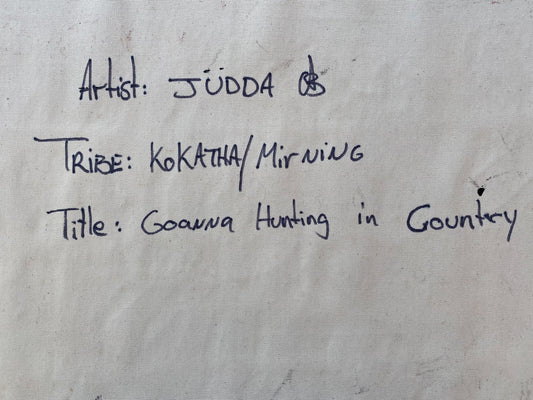 Artist: JÜDDA
TRIBE: KOKATHA/MirNiNG
Title: Goanna Hunting in Country